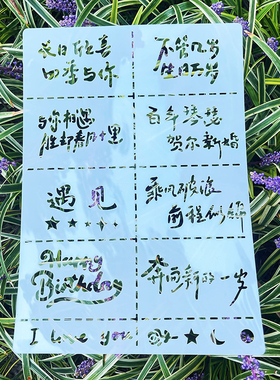 四季与你
不管几岁
生日万岁
与你相遇
胜却春风十里
百年琴瑟
贺尔新婚
遇见
乘风破浪
前程似锦
Happy
Birthday
奔向新的一岁
I love you